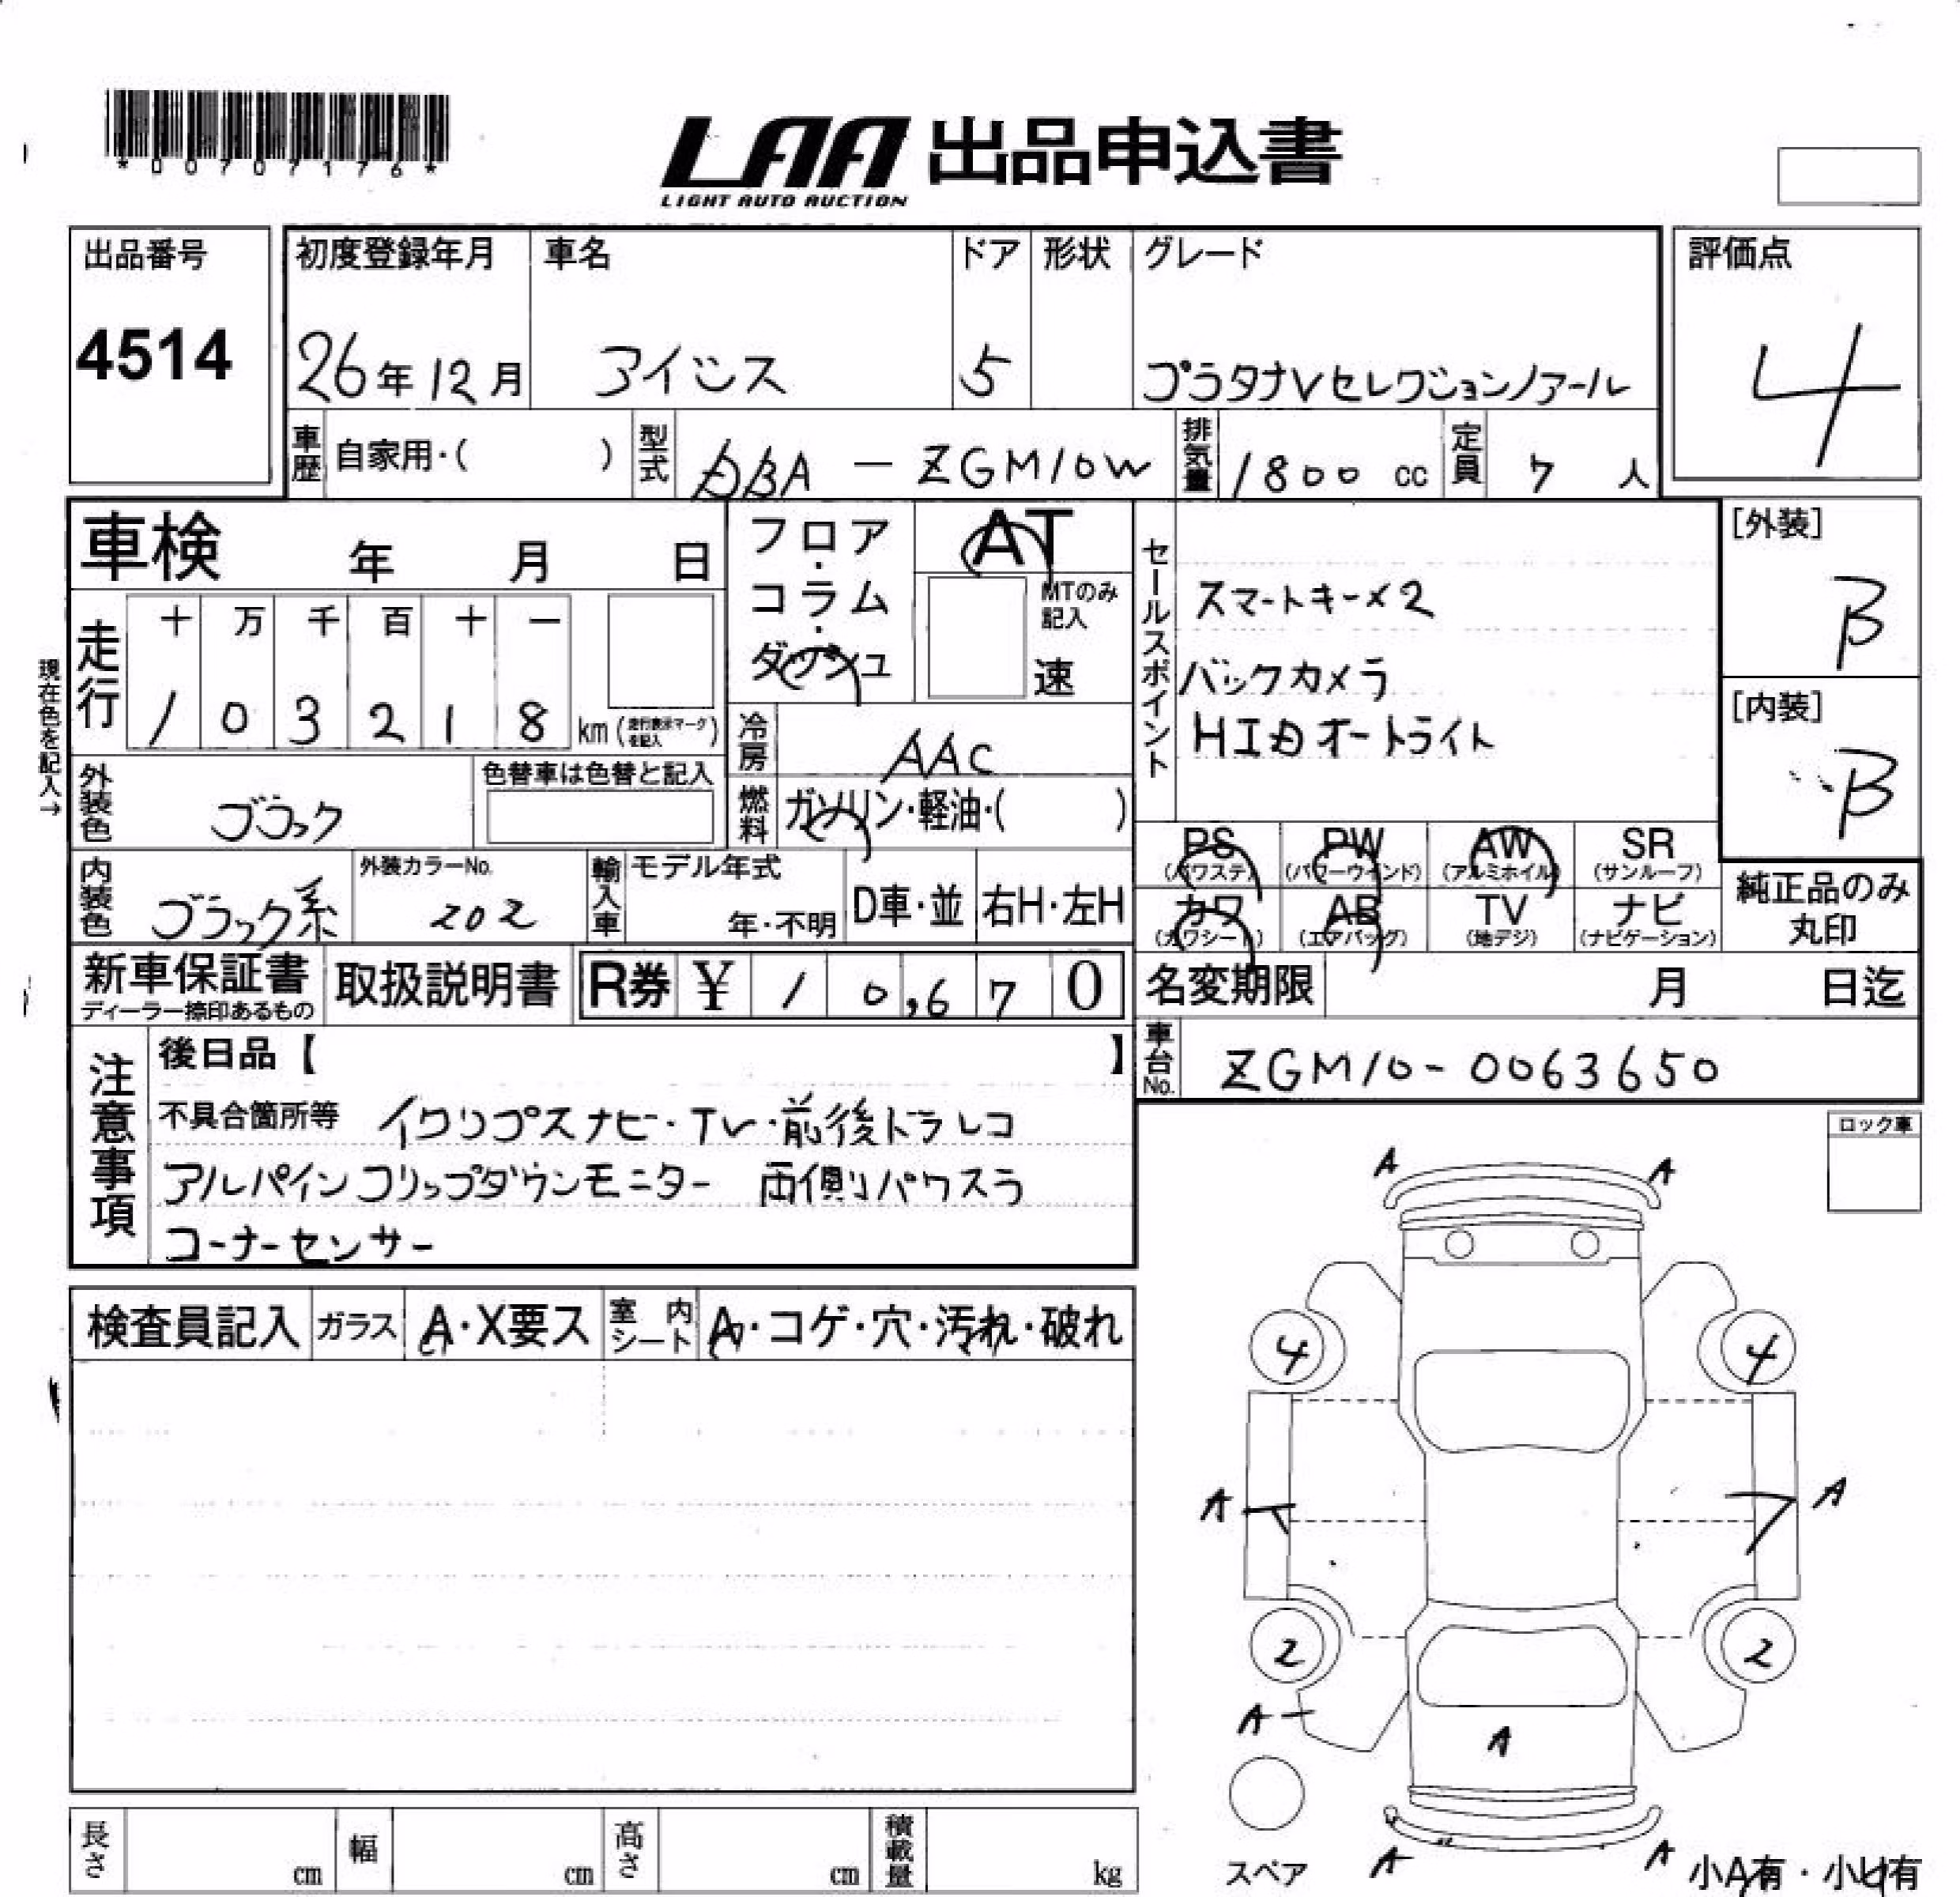 *00707176*
LAA 出品申込書
LIGHT AUTO AUCTION
出品番号
4514
初度登録年月
26年12月
車名
アイシス
ドア
5
形状
グレード
プラタナVセレクションノアール
評価点
4
車歴 自家用・( )
型式 DBA - ZGM10W
排気量 1800 cc
定員 7 人
車検 年 月 日
フロア・コラム・ダッシュ
AT
MTのみ記入
速
セールスポイント
スマートキー×2
バックカメラ
HID オートライト
[外装]
B
[内装]
B
現在色を記入→
走行
十 万 千 百 十 一
1 0 3 2 1 8 km (走行表示マークを記入)
冷房 AAC
外装色 ブラック
色替車は色替と記入
燃料 ガソリン・軽油・( )
PS (パワステ)
PW (パワーウインド)
AW (アルミホイル)
SR (サンルーフ)
カワ (カワシート)
AB (エアバッグ)
TV (地デジ)
ナビ (ナビゲーション)
純正品のみ
丸印
内装色 ブラック系
外装カラーNo.
202
輸入車
モデル年式
年・不明
D車・並
右H・左H
新車保証書
ディーラー捺印あるもの
取扱説明書
R券 ¥ 1 0,6 7 0
名変期限 月 日迄
車台No. ZGM10-0063650
注意事項
後日品【 】
不具合箇所等 イクリプスナビ・TV・前後ドラレコ
アルパインフリップダウンモニター 両側パワスラ
コーナーセンサー
ロック車
検査員記入
ガラス A・X要ス
室内シート A・コゲ・穴・汚れ・破れ
A A
4 4
A A
2 2
A
A
A A
スペア
小A有・小U有
長さ cm
幅 cm
高さ cm
積載量 kg